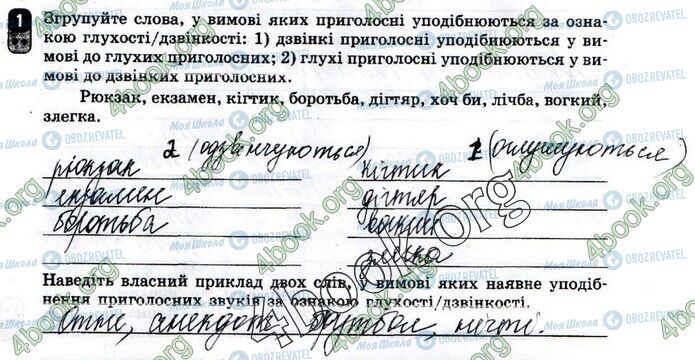 1 Згрупуйте слова, у вимові яких приголосні уподібнюються за озна-
кою глухості/дзвінкості: 1) дзвінкі приголосні уподібнюються у ви-
мові до глухих приголосних; 2) глухі приголосні уподібнюються у ви-
мові до дзвінких приголосних.
Рюкзак, екзамен, кігтик, боротьба, дігтяр, хоч би, лічба, вогкий,
злегка.
2 (одзвінчуються) 1 (оглушуються)
рюкзак кігтик
екзамен дігтяр
боротьба вогкий
злегка
Наведіть власний приклад двох слів, у вимові яких наявне уподіб-
нення приголосних звуків за ознакою глухості/дзвінкості.
Отже, анекдот, футбол, нігті.
4book.org
Моя Школа
OBOZREVATEL